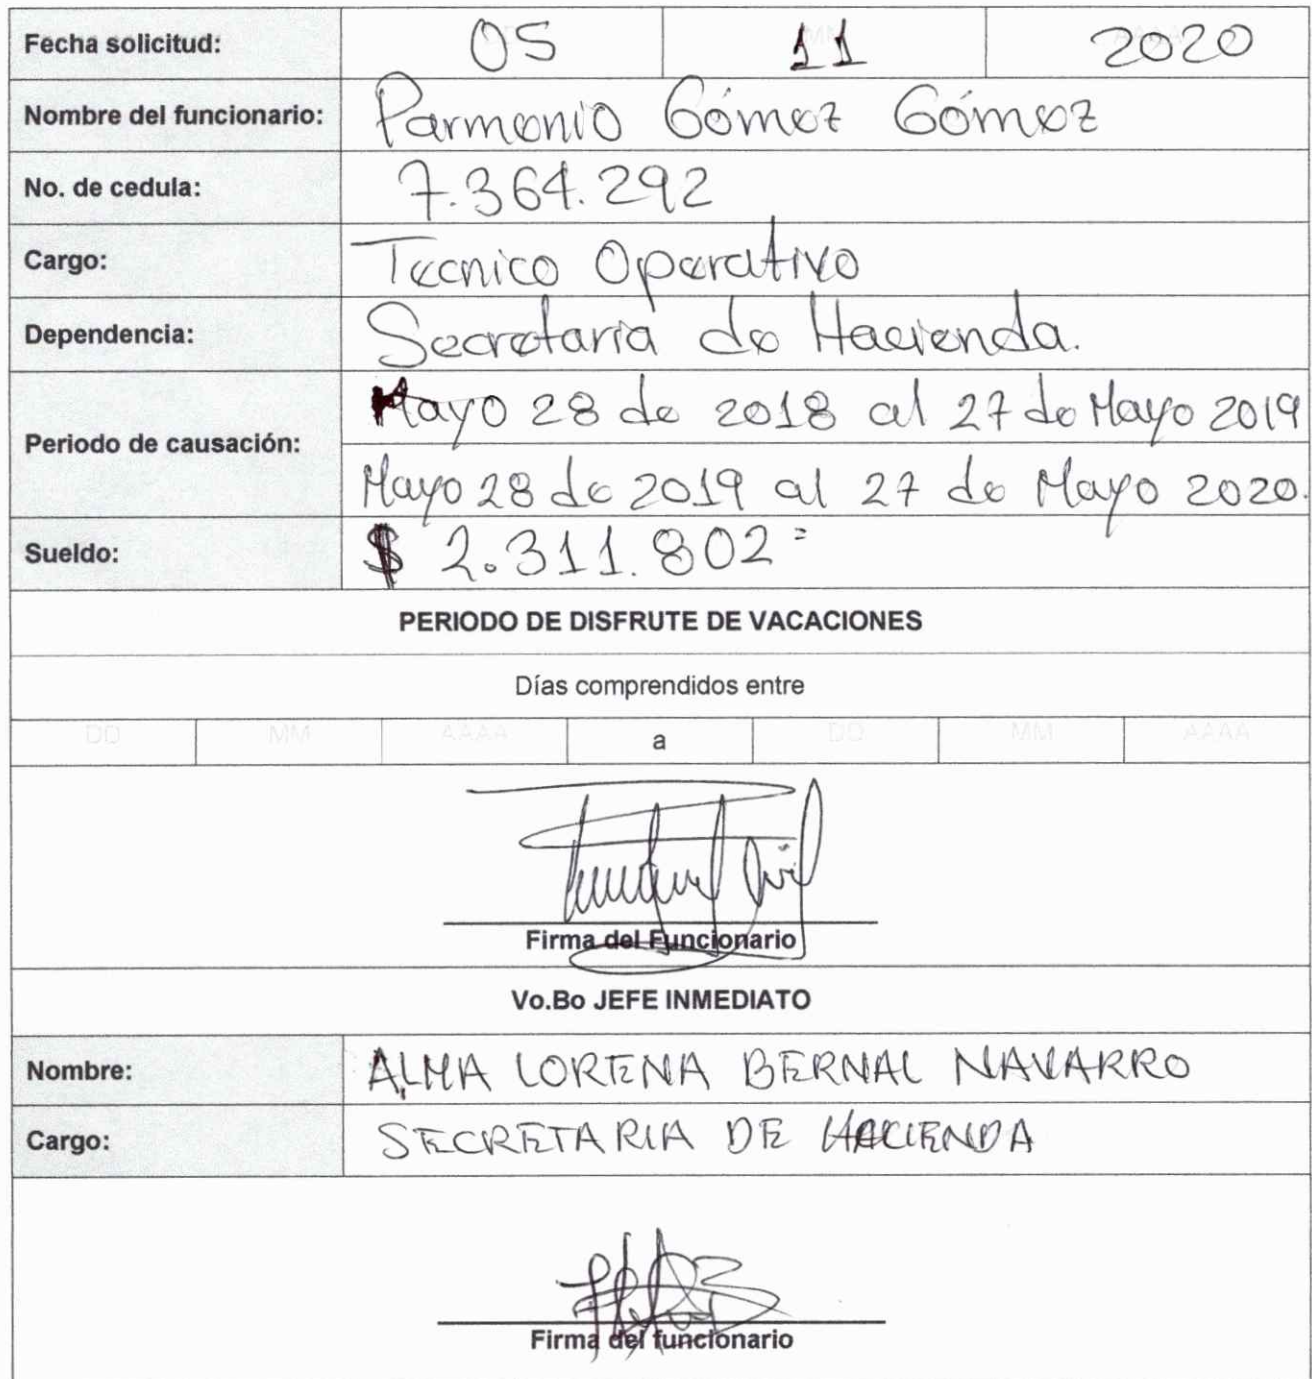 Fecha solicitud: 05 11 2020
Nombre del funcionario: Parmenio Gómez Gómez
No. de cedula: 7.364.292
Cargo: Tecnico Operativo
Dependencia: Secretaria de Hacienda.
Periodo de causación: Mayo 28 de 2018 al 27 de Mayo 2019
Mayo 28 de 2019 al 27 de Mayo 2020.
Sueldo: $ 2.311.802=
PERIODO DE DISFRUTE DE VACACIONES
Días comprendidos entre
DD MM AAAA a DD MM AAAA
Firma del Funcionario
Vo.Bo JEFE INMEDIATO
Nombre: ALMA LORENA BERNAL NAVARRO
Cargo: SECRETARIA DE HACIENDA
Firma del funcionario